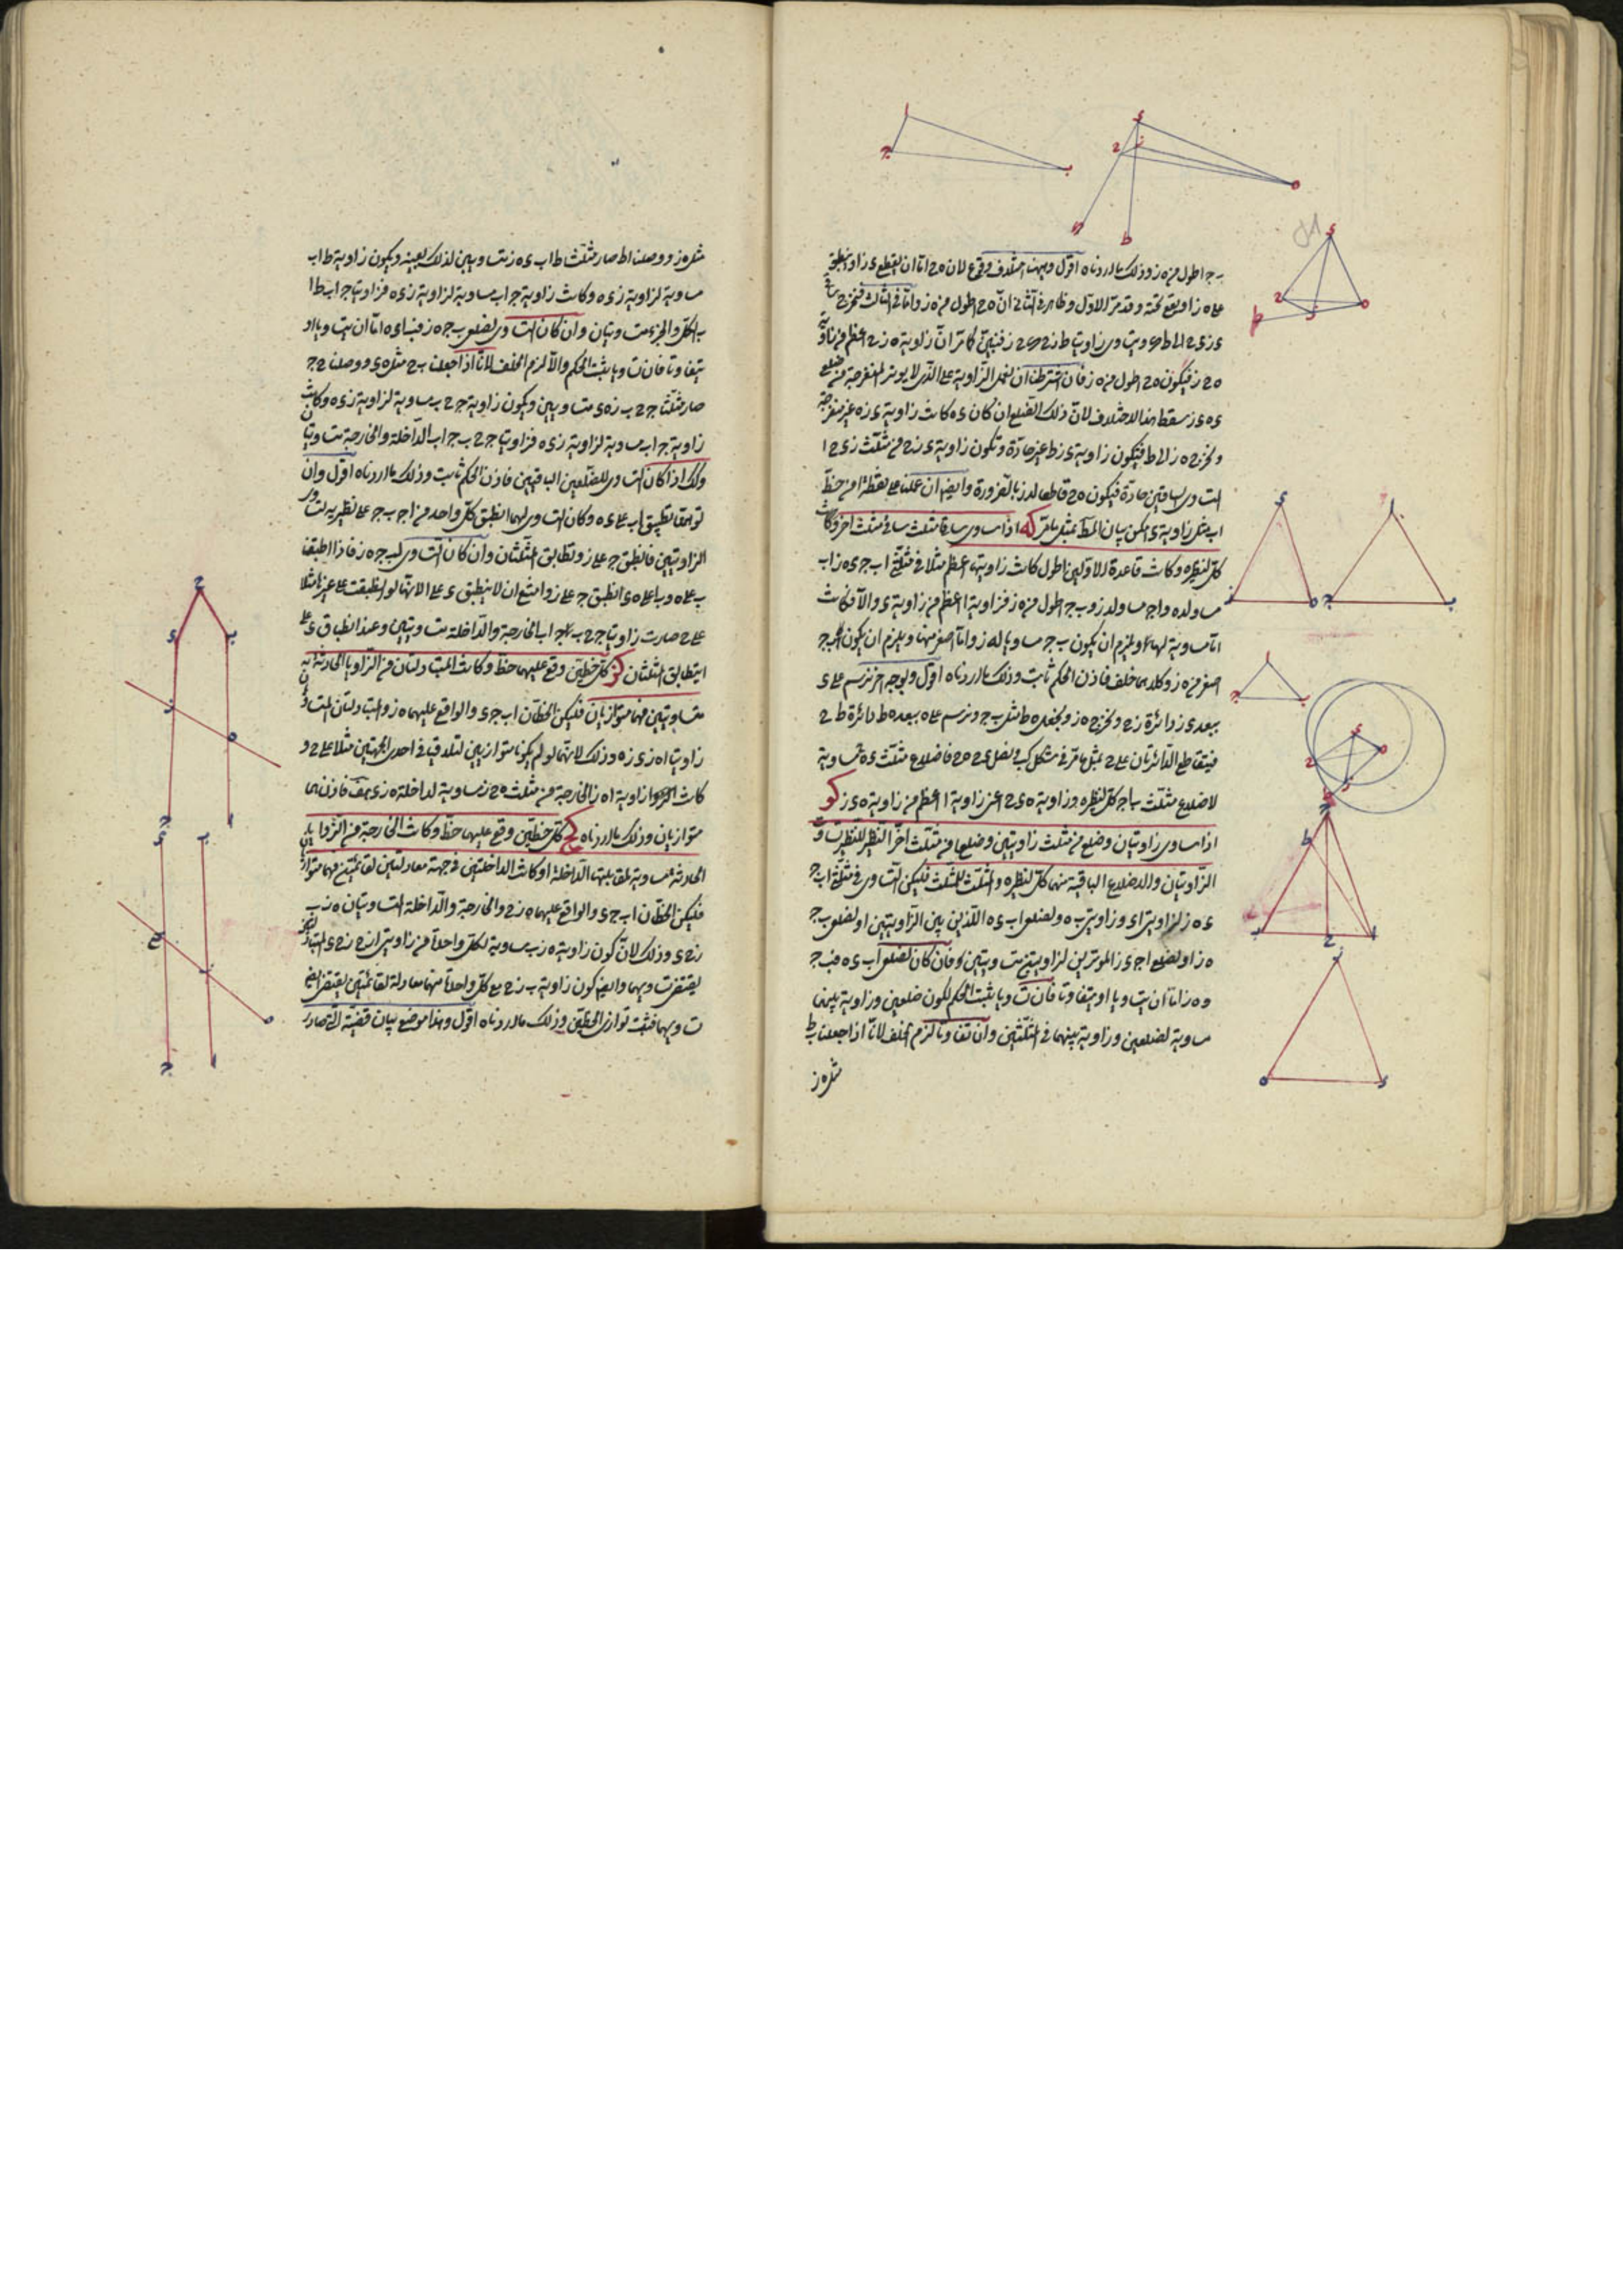 ب ج اطول من ه ز وذلك ما اردناه اقول وههنا اختلاف وقوع لان ه ح اما ان يقطع د ز او ينطبق
على ه ز او يقع تحته وقد مر الاول وظاهر في الثاني ان ه ح اطول من ه ز واما في الثالث فنخرج
ه ح ز فيكون ه ح اطول من ه ز فان اشترطنا ان نعمل الزاوية على الذى لا يوتر المنفرجة من ضلعى
د ه د ز سقط هذا الاختلاف لان ذلك الضلع ان كان د ه كانت زاوية د ز ه غير منفرجة
ونخرج ه ز الى ط فيكون زاوية د ز ط غير حادة وتكون زاوية د ز ح من مثلث د ز ح
المتساوى الساقين حادة فيكون ه ح قاطعا لد ز بالضرورة وايضا ان عملنا على نقطة ا من خط
اب مثل زاوية د امكن بيان المط بمثل ما مر كه اذا ساوى ساقا مثلث ساقى مثلث اخر وكانت
كل لنظيره وكانت قاعدة الاولين اطول كانت زاويتهما اعظم مثلا في مثلثى اب ج د ه ز اب
مساو لد ه واج مساو لد ز وب ج اطول من ه ز فزاوية ا اعظم من زاوية د والا فكانت
اما مساوية لها ويلزم ان يكون ب ج مساويا له ز واما اصغر منها ويلزم ان يكون ب ج
اصغر من ه ز وكلاهما خلف فاذن الحكم ثابت وذلك ما اردناه اقول وبوجه اخر نرسم على د
ببعد د ز دائرة ز ح ونخرج ه ز ونجعل ه ط مثل ب ج ونرسم على ه ببعد ه ط دائرة ط ح
فيتقاطع الدائرتان على ح بمثل ما مر في شكل كب ونصل د ح ه ح فاضلاع مثلث د ه ح مساوية
لاضلاع مثلث ب ا ج كل لنظيره وزاوية ه د ح اعنى زاوية ا اعظم من زاوية ه د ز كو
اذا ساوى زاويتان وضلع من مثلث زاويتين وضلعا من مثلث اخر النظير للنظير تساوت
الزاويتان والاضلاع الباقية منهما كل لنظيره والمثلث للمثلث فليكن التساوى في مثلثى اب ج
د ه ز لزاويتى ا د وزاويتى ب ه ولضلعى اب د ه اللذين بين الزاويتين او لضلعى ب ج
ه ز او لضلعى اج د ز الموترين لزاويتين متساويتين فان كان لضلعى اب د ه فب ج
وه ز اما ان يتساويا او يتفاوتا فان تساويا ثبت الحكم لكون ضلعين وزاوية بينهما
مساوية لضلعين وزاوية بينهما في المثلثين وان تفاوتا لزم الخلف لانا اذا جعلنا ب ط
مثل ه ز
مثل ه ز ووصلنا اط صار مثلثا ط اب د ه ز متساويين لذلك بعينه ويكون زاوية ط اب
مساوية لزاوية ز د ه وكانت زاوية ج اب مساوية لزاوية ز د ه فزاويتا ج اب ط اب
الكل والجزء متساويتان وان كان التساوى لضلعى ب ج ه ز فب ا ه د اما ان يتساويا او
يتفاوتا فان تساويا ثبت الحكم والا لزم الخلف لانا اذا جعلنا ب ح مثل ه د ووصلنا ح ج
صار مثلثا ج ح ب ز د ه متساويين ويكون زاوية ج ح ب مساوية لزاوية ز د ه وكانت
زاوية ج اب مساوية لزاوية ز د ه فزاويتا ج ح ب ج اب الداخلة والخارجة متساويتان
وكذلك اذا كان التساوى للضلعين الباقيين فاذن الحكم ثابت وذلك ما اردناه اقول وان
توهمنا تطبيق اب على د ه وكان التساوى لهما انطبق كل واحد من اج ب ج على نظيره لتساوى
الزاويتين فانطبق ج على ز وتطابق المثلثان وان كان التساوى لب ج ه ز فاذا اطبقنا
ب على ه وب ا على ه د انطبق ج على ز وامتنع ان لا ينطبق د على ا لانها لو انطبقت على غيرها مثلا
على ح صارت زاويتا ج ح ب ج اب الخارجة والداخلة متساويتين وعند انطباق د على
ا يتطابق المثلثان كز كل خطين وقع عليهما خط وكانت المتبادلتان من الزوايا الحادثة به
متساويتين فهما متوازيان فليكن الخطان اب ج د والواقع عليهما ه ز والمتبادلتان المتساويتان
زاويتا ا ه ز د ز ه وذلك لانهما لو لم يكونا متوازيين لتلاقيا في احدى الجهتين مثلا على ح و
كانت زاوية ا ه ز الخارجة من مثلث ه ح ز مساوية لداخلة ه ز د هف فاذن هما
متوازيان وذلك ما اردناه كح كل خطين وقع عليهما خط وكانت الخارجة من الزوايا
الحادثة مساوية لمقابلتها الداخلة او كانت الداخلتين في جهة معادلتين لقائمتين فهما متوازيان
فليكن الخطان اب ج د والواقع عليهما ه ز ح والخارجة والداخلة المتساويتان ه ز ب
يقتضى تساويهما وايضا كون زاوية ب ز ح مع كل واحدة منهما معادلة لقائمتين يقتضى ايضا
تساويهما فثبت توازى الخطين وذلك ما اردناه اقول وهذا موضع بيان قضية التصادر